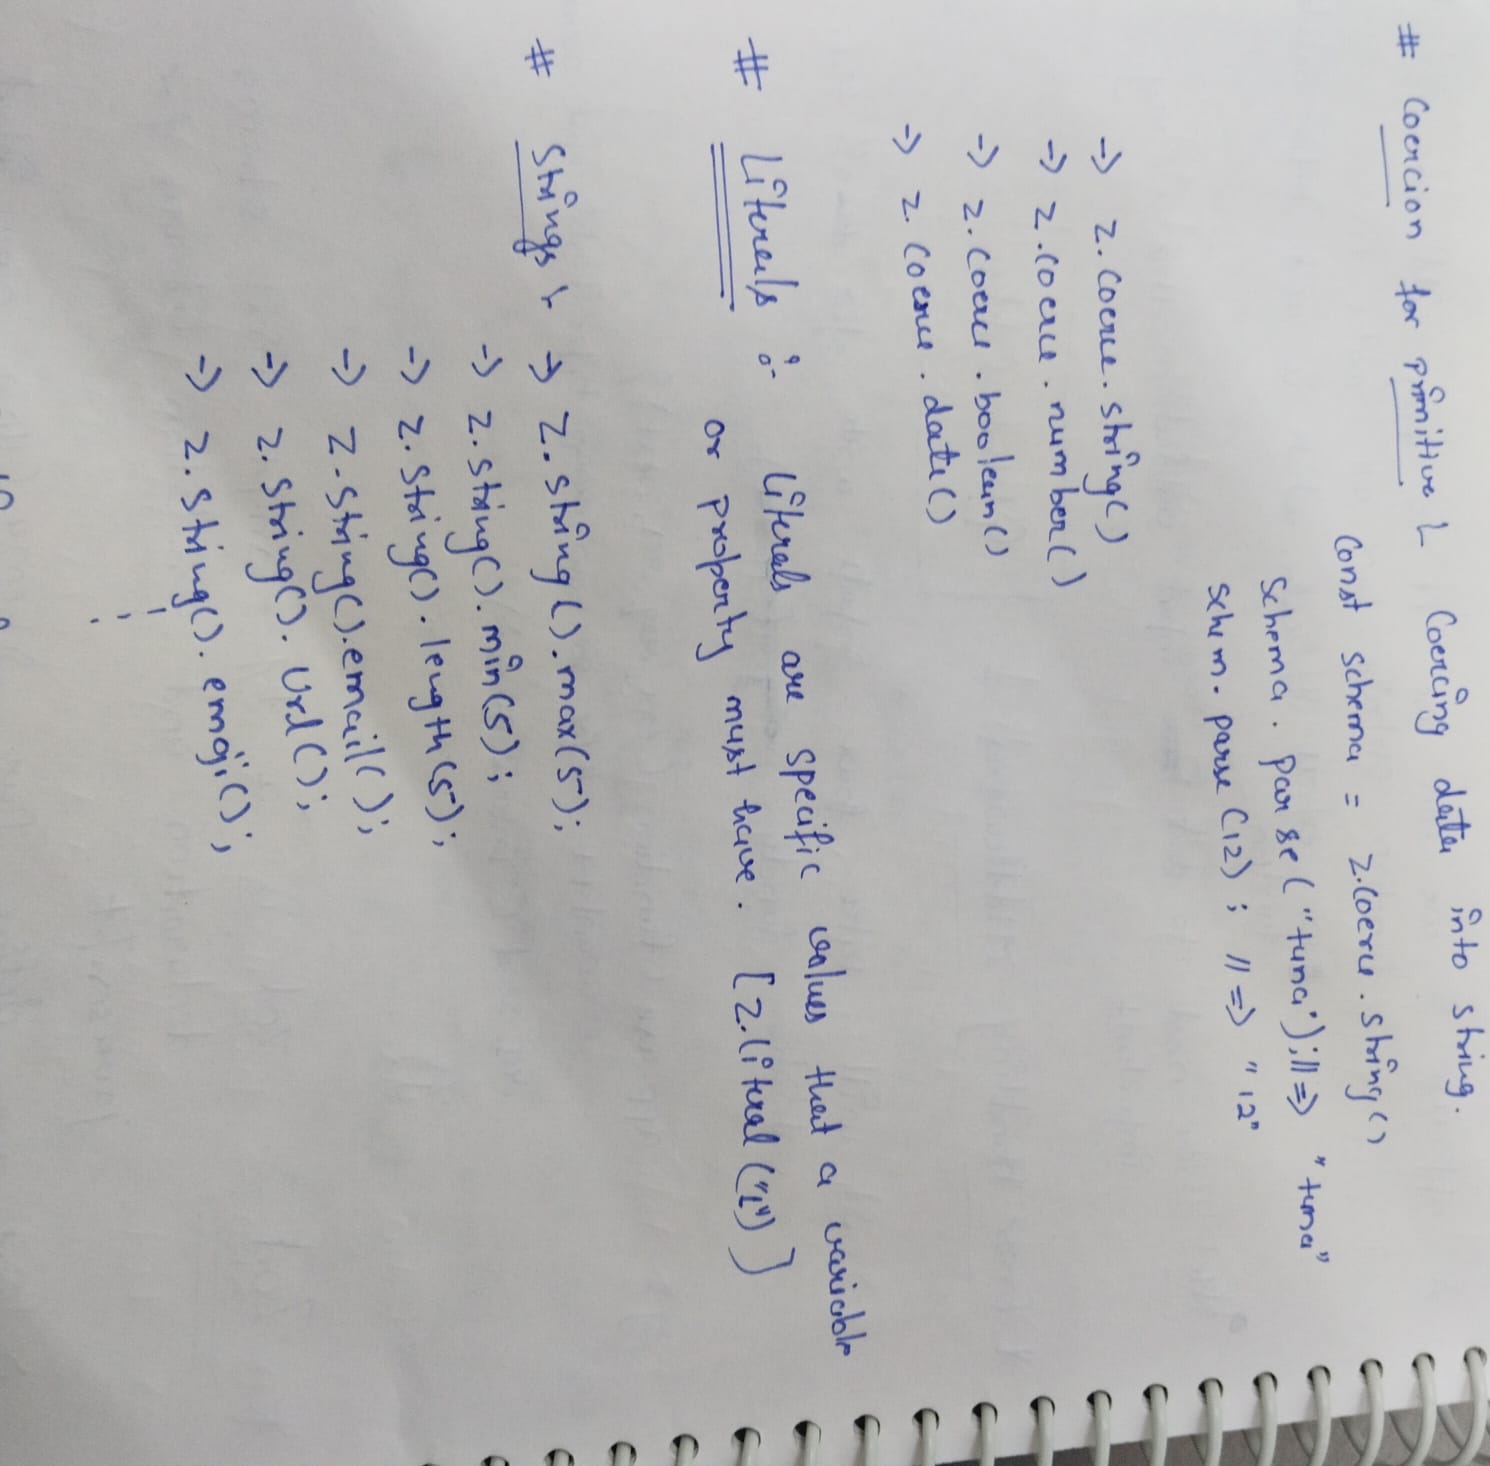 # Coercion for primitive : Coercing data into string.
const schema = z.coerce.string()
schema.parse("tuna"); // => "tuna"
schem.parse(12); // => "12"
-> z.coerce.string()
-> z.coerce.number()
-> z.coerce.boolean()
-> z.coerce.date()
# Literals : Literals are specific values that a variable
or property must have. [z.literal("1")]
# Strings : -> z.string().max(5);
-> z.string().min(5);
-> z.string().length(5);
-> z.string().email();
-> z.string().url();
-> z.string().emoji();